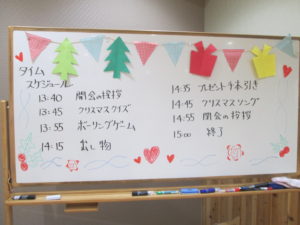 タイム
スケジュール
13:40 開会の挨拶
13:45 クリスマスクイズ
13:55 ボーリングゲーム
14:15 出し物
14:35 プレゼント千本引き
14:45 クリスマスソング
14:55 閉会の挨拶
15:00 終了